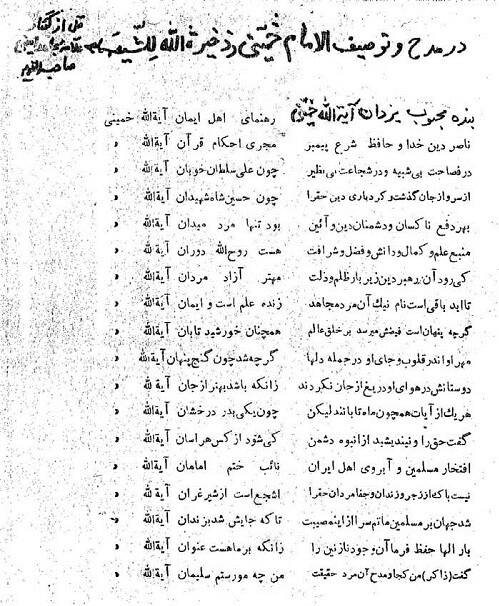 نقل از گفتار
در مدح و توصیف الامام خمینی ذخیرة الله للشیعه
بنده محبوب یزدان آیةالله خمینی رهنمای اهل ایمان آیةالله خمینی
ناصر دین خدا و حافظ شرع پیمبر مجری احکام قرآن آیةالله "
در فصاحت بی شبیه و در شجاعت بی نظیر چون علی سلطان خوبان آیةالله "
از سر و از جان گذشت و کرد یاری دین حقرا چون حسین شاه شهیدان آیةالله "
بهر دفع ناکسان و دشمنان دین و آئین بود تنها مرد میدان آیةالله "
منبع علم و کمال و دانش و فضل و شرافت هست روح‌الله دوران آیةالله "
کی رود آن رهبر دین زیر بار ظلم و ذلت مهتر آزاد مردان آیةالله "
تا ابد باقی است نام نیک آن مرد مجاهد زنده علم است و ایمان آیةالله "
گرچه پنهان است فیضش میرسد بر خلق عالم همچنان خورشید تابان آیةالله "
مهر او اندر قلوب و جای او در جمله دلها گرچه شد چون گنج پنهان آیةالله "
دوستانش در هوای او دریغ از جان نکردند زانکه باشد بهتر از جان آیةالله "
هر یک از آیات همچون ماه تابانند لیکن چون یکی بدر درخشان آیةالله "
گفت حق را و نیندیشید از انبوه دشمن کی شود از کس هراسان آیةالله "
افتخار مسلمین و آبروی اهل ایران نائب ختم امامان آیةالله "
نیست باکه از زجر و زندان و جفا مردان حقرا اشجع است از شیر غران آیةالله "
شد جهان بر مسلمین ماتم سرا از اینه مصیبت تا که جایش شد بزندان آیةالله "
بار الها حفظ فرما آن وجود نازنین را زانکه بر ماهست عنوان آیةالله "
گفت (ذاکر) من کجا و مدح آن مرد حقیقت من چه مورستم سلیمان آیةالله "